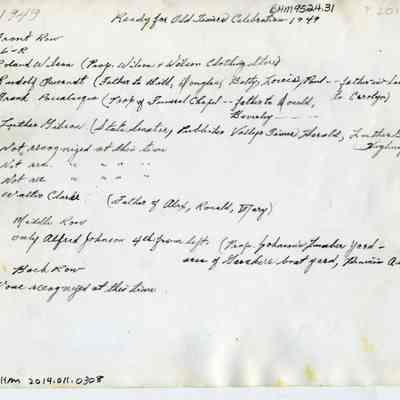 BHM9524.31
1949
Ready for Old Timers Celebration 1949
Front Row
L-R
Roland Wilson (Prop. Wilson & Wilson Clothing Store)
Rudolf (Father to Bill, Douglas, Betty, Paul -- father in law to Carolyn)
Frank (Prop of Funeral Chapel -- father to Donald, Beverly
Luther Gibson (State Senator, Publishes Vallejo Times Herald,
Not recognized at this time
Not rec. " " "
Not rec " " "
Walter Clark (Father of Alex, Ronald, Mary)
Middle Row
only Alfred Johnson 4th from left. (Prop. Johansin Lumber Yard -
area of boat yard,
Back Row
None recognized at this time
BHM 2014.011.0308